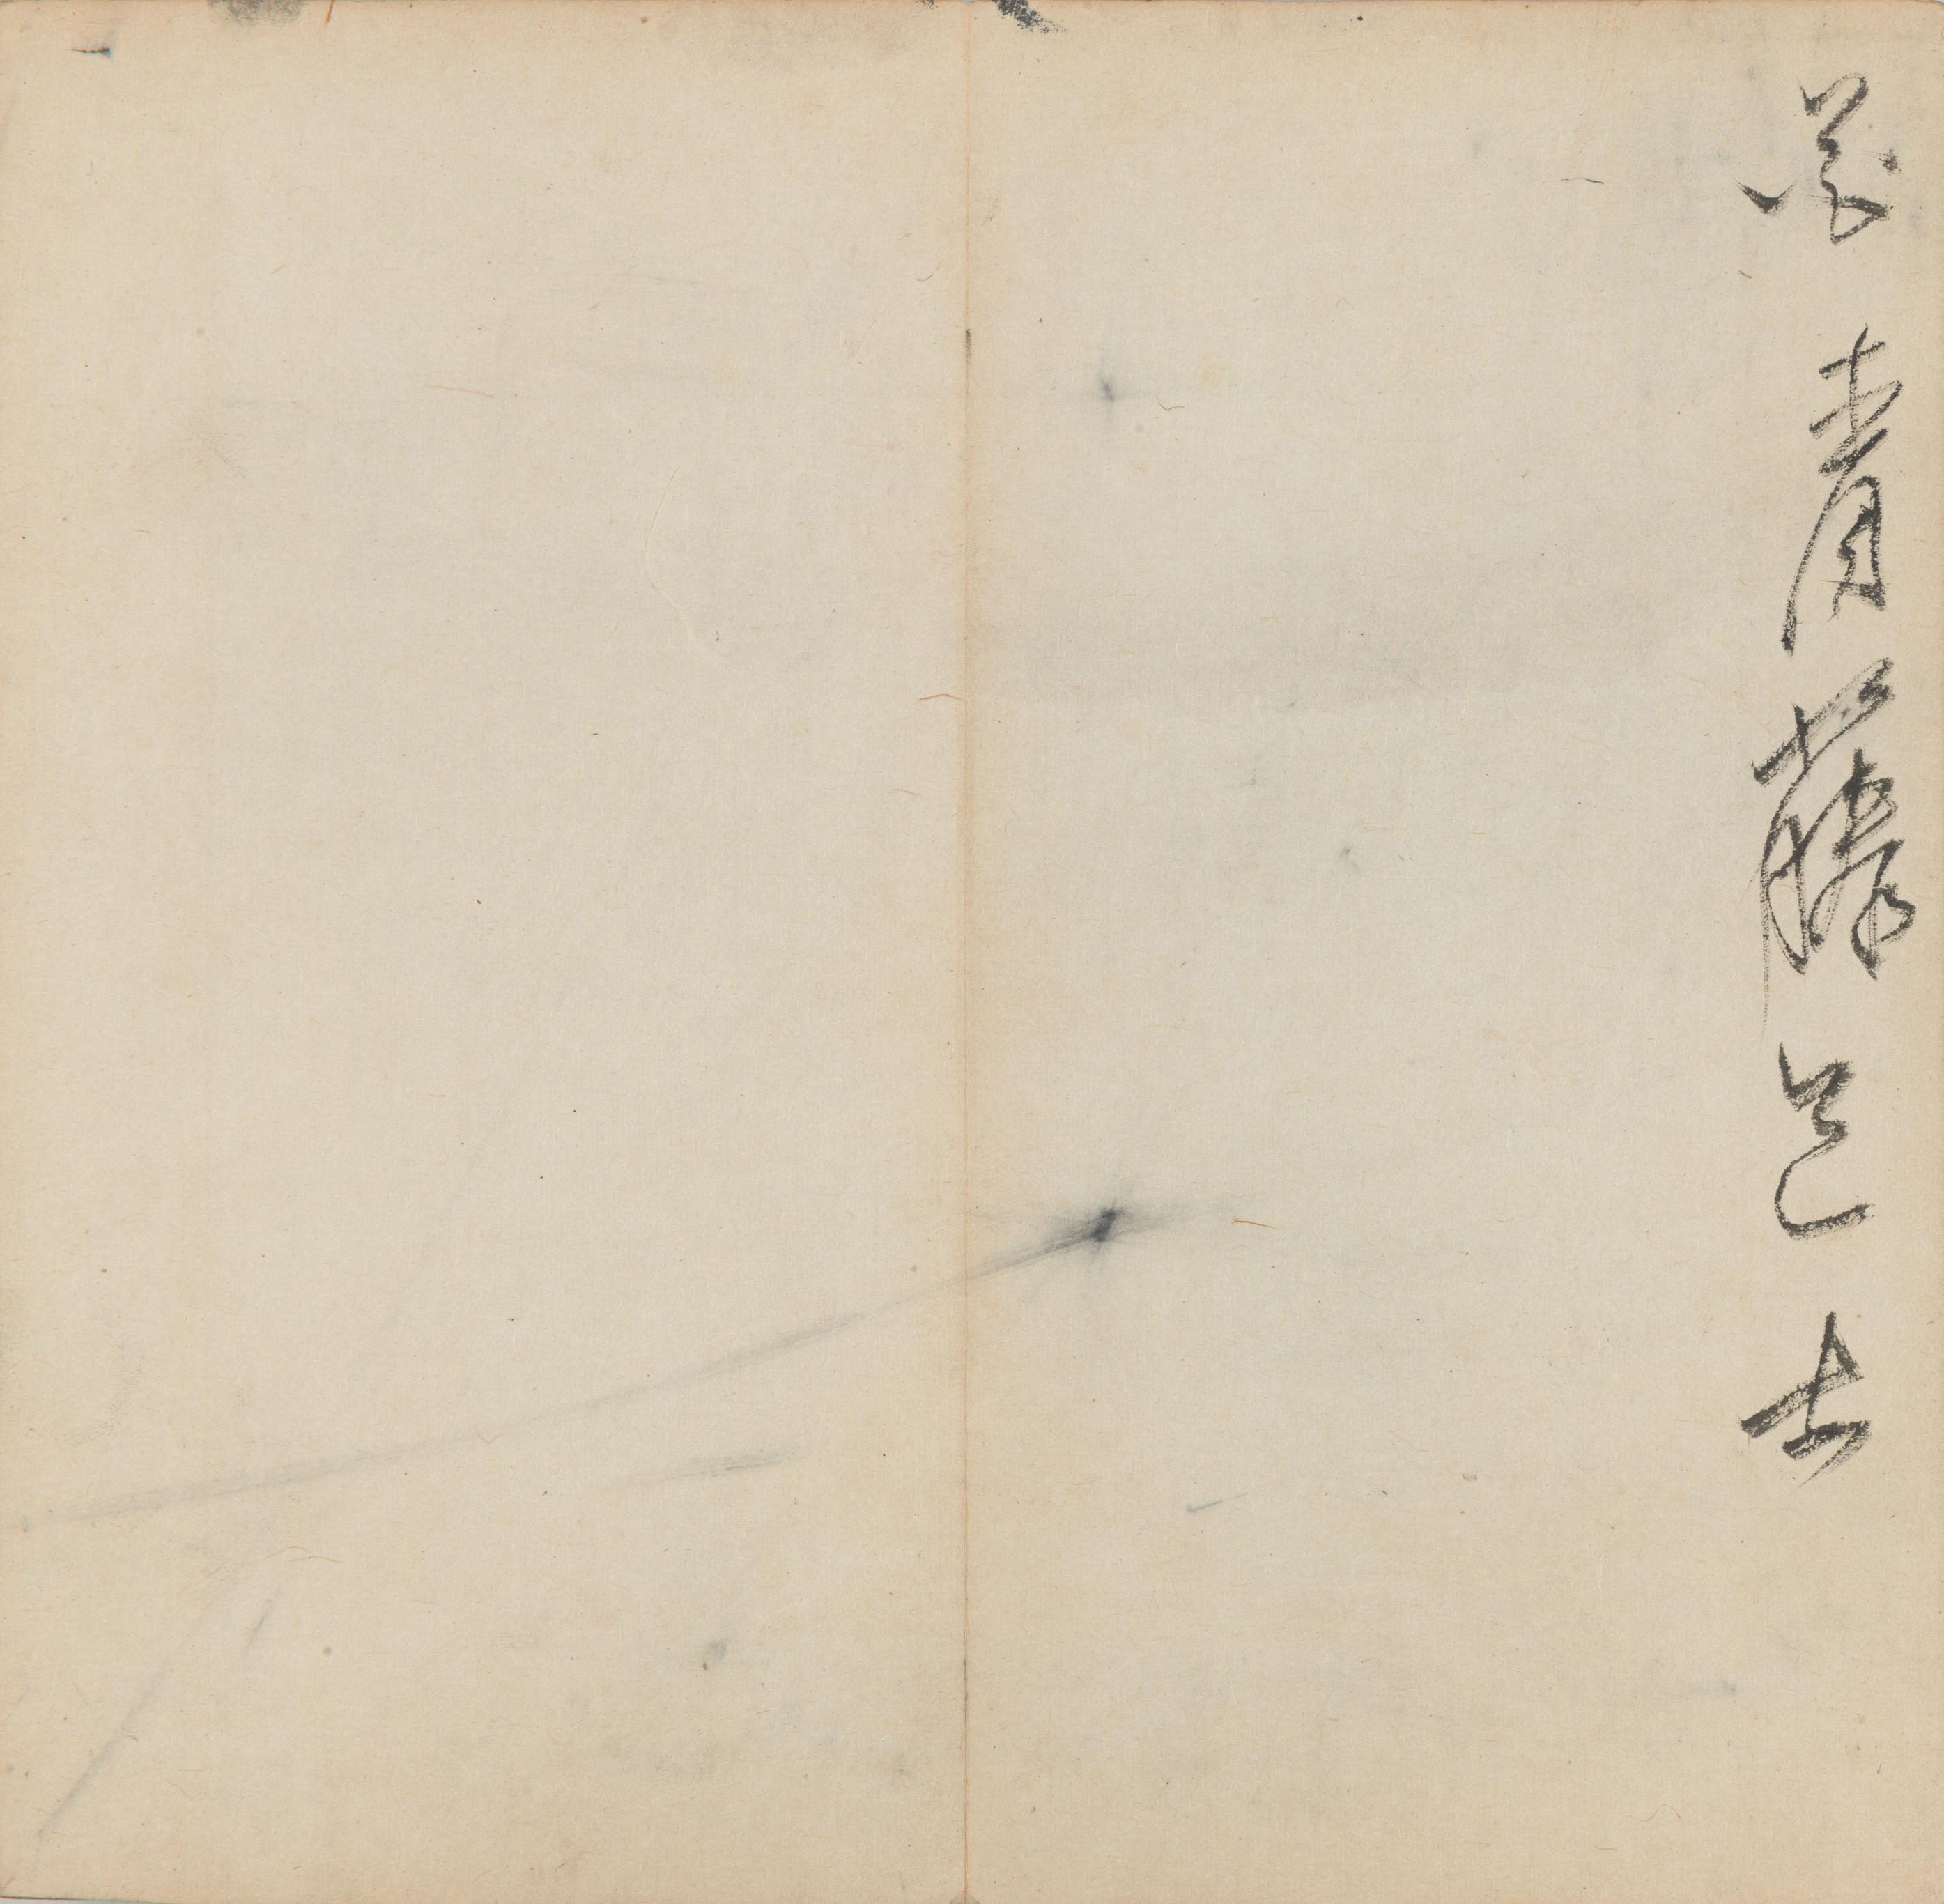 青藤道士